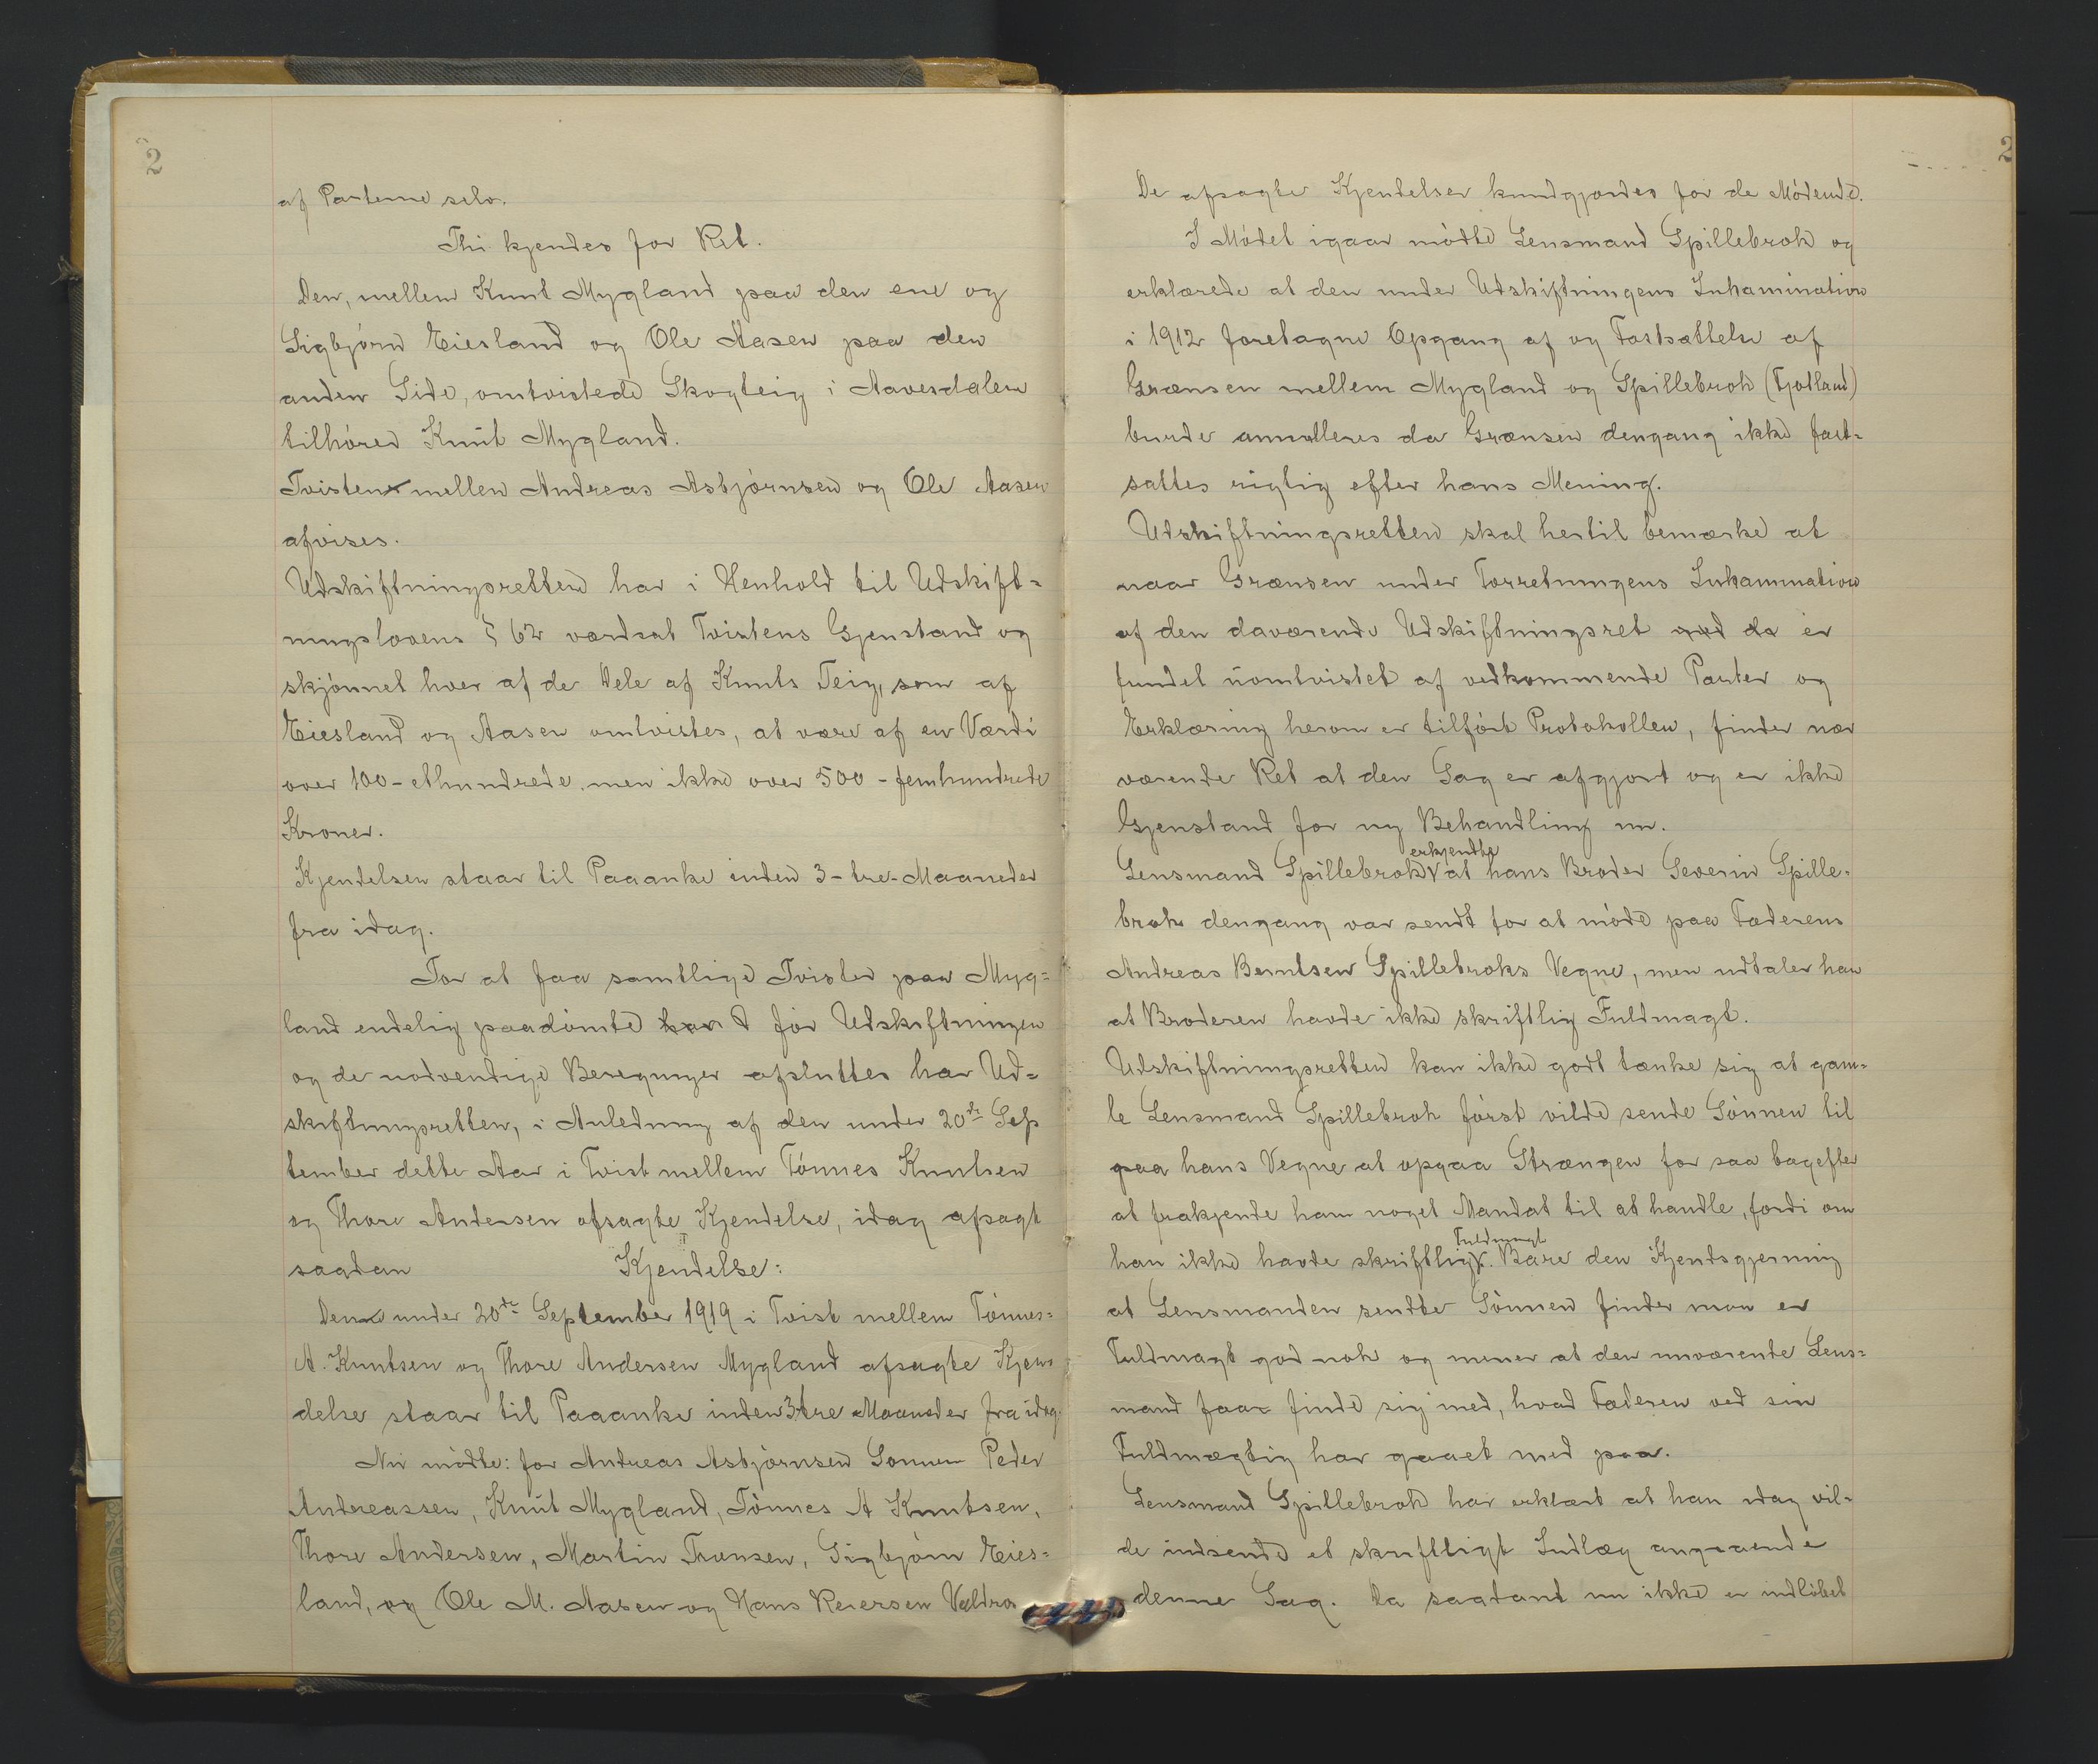 2
af Parterne selv.
Thi kjendes for Ret.
Den, mellem Knut Mygland paa den ene og
Sigbjørn Eiesland og Ole Aasen paa den
anden Side, omtvistede Skogteig i Aavesdalen
tilhører Knut Mygland.
Tvisten mellem Andreas Asbjørnsen og Ole Aasen
afvises.
Udskiftningsretten har i Henhold til Udskift-
ningslovens § 62 værdsat Tvistens Gjenstand og
skjønnet hver af de Dele af Knuts Teig, som af
Eiesland og Aasen omtvistes, at være af en Værdi
over 100 - ethundrede, men ikke over 500 - femhundrede
Kroner.
Kjendelsen staar til Paaanke inden 3 - tre - Maaneder
fra idag.
For at faa samtlige Tvister paa Myg-
land endelig paadømte før Udskiftningen
og de nødvendige Beregninger afsluttes har Ud-
skiftningsretten, i Anledning af den under 20de Sep
tember dette Aar i Tvist mellem Tønnes Knutsen
og Thore Andersen afsagte Kjendelse, idag afsagt
saadan Kjendelse:
Den under 20de September 1919 i Tvist mellem Tønnes
A. Knutsen og Thore Andersen Mygland afsagte Kjen-
delse staar til Paaanke inden 3 tre Maaneder fra idag.
Nu mødte: for Andreas Asbjørnsen Sønnen Peder
Andreassen, Knut Mygland, Tønnes A Knutsen,
Thore Andersen, Martin Transen, Sigbjørn Eies-
land, og Ole M. Aasen og Hans Reiersen
2
De afsagte Kjendelser kundgjordes for de Mødende.
I Mødet igaar mødte Lensmand Spillebrok og
erklærede at den under Udskiftningens Inkamination
i 1912 foretagne Opgang af og Fastsættelse af
Grænsen mellem Mygland og Spillebrok (Fjotland)
burde annulleres da Grænsen dengang ikke fast-
sattes rigtig efter hans Mening.
Udskiftningsretten skal hertil bemærke at
naar Grænsen under Forretningens Inkamination
af den daværende Udskiftningsret er
fundet uomtvistet af vedkommende Parter og
Erklæring herom er tilført Protokollen, finder nær
værende Ret at den Sag er afgjort og er ikke
Gjenstand for ny Behandling nu.
Lensmand Spillebrok erkjendte at hans Broder Severin Spille-
brok dengang var sendt for at møde paa Faderens
Andreas Berntsen Spillebroks Vegne, men udtaler han
at Broderen havde ikke skriftlig Fuldmagt.
Udskiftningsretten kan ikke godt tænke sig at gam-
le Lensmand Spillebrok først vilde sende Sønnen til
paa hans Vegne at opgaa Strængen for saa bagefter
at frakjende ham noget Mandat til at handle, fordi om
han ikke havde skriftlig Fuldmagt. Bare den Kjendsgjerning
at Lensmanden sendte Sønnen finder man er
Fuldmagt god nok og mener at den nuværende Lens-
mand faar finde sig med, hvad Faderen ved sin
Fuldmægtig har gaaet med paa.
Lensmand Spillebrok har erklært at han idag vil-
de indsende et skriftligt Indlæg angaaende
denne Sag. Da saadant nu ikke er indløbet